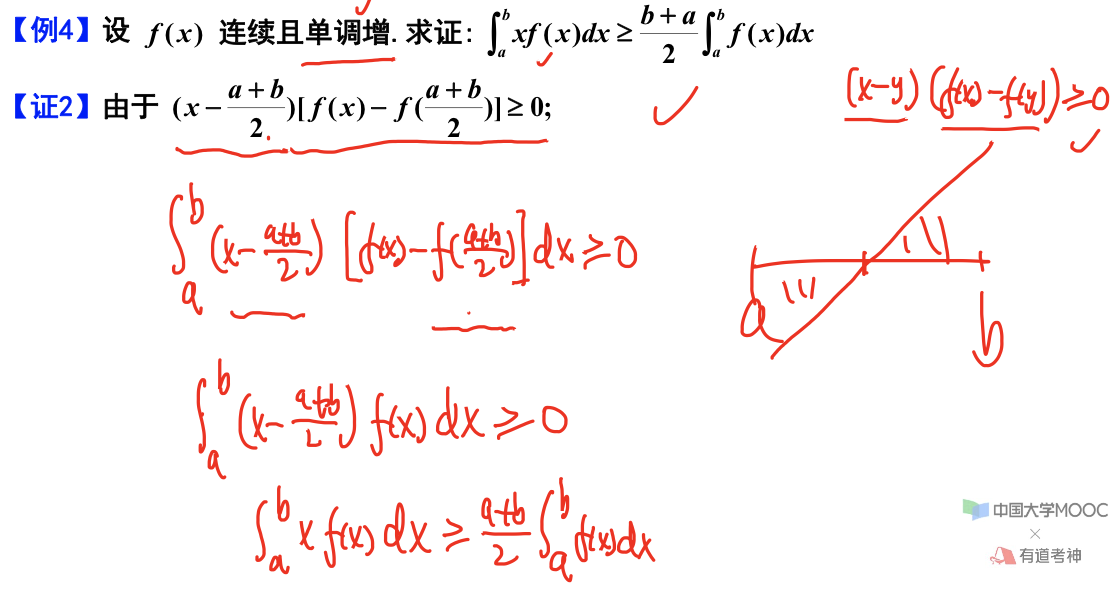 【例4】设 f(x) 连续且单调增. 求证: ∫_a^b xf(x)dx ≥ \frac{b+a}{2} ∫_a^b f(x)dx
(x-y) (f(x)-f(y)) ≥ 0
【证2】由于 (x - \frac{a+b}{2})[f(x) - f(\frac{a+b}{2})] ≥ 0;
∫_a^b (x - \frac{a+b}{2}) [f(x) - f(\frac{a+b}{2})] dx ≥ 0
a b
∫_a^b (x - \frac{a+b}{2}) f(x) dx ≥ 0
∫_a^b x f(x) dx ≥ \frac{a+b}{2} ∫_a^b f(x) dx
中国大学MOOC
×
有道考神